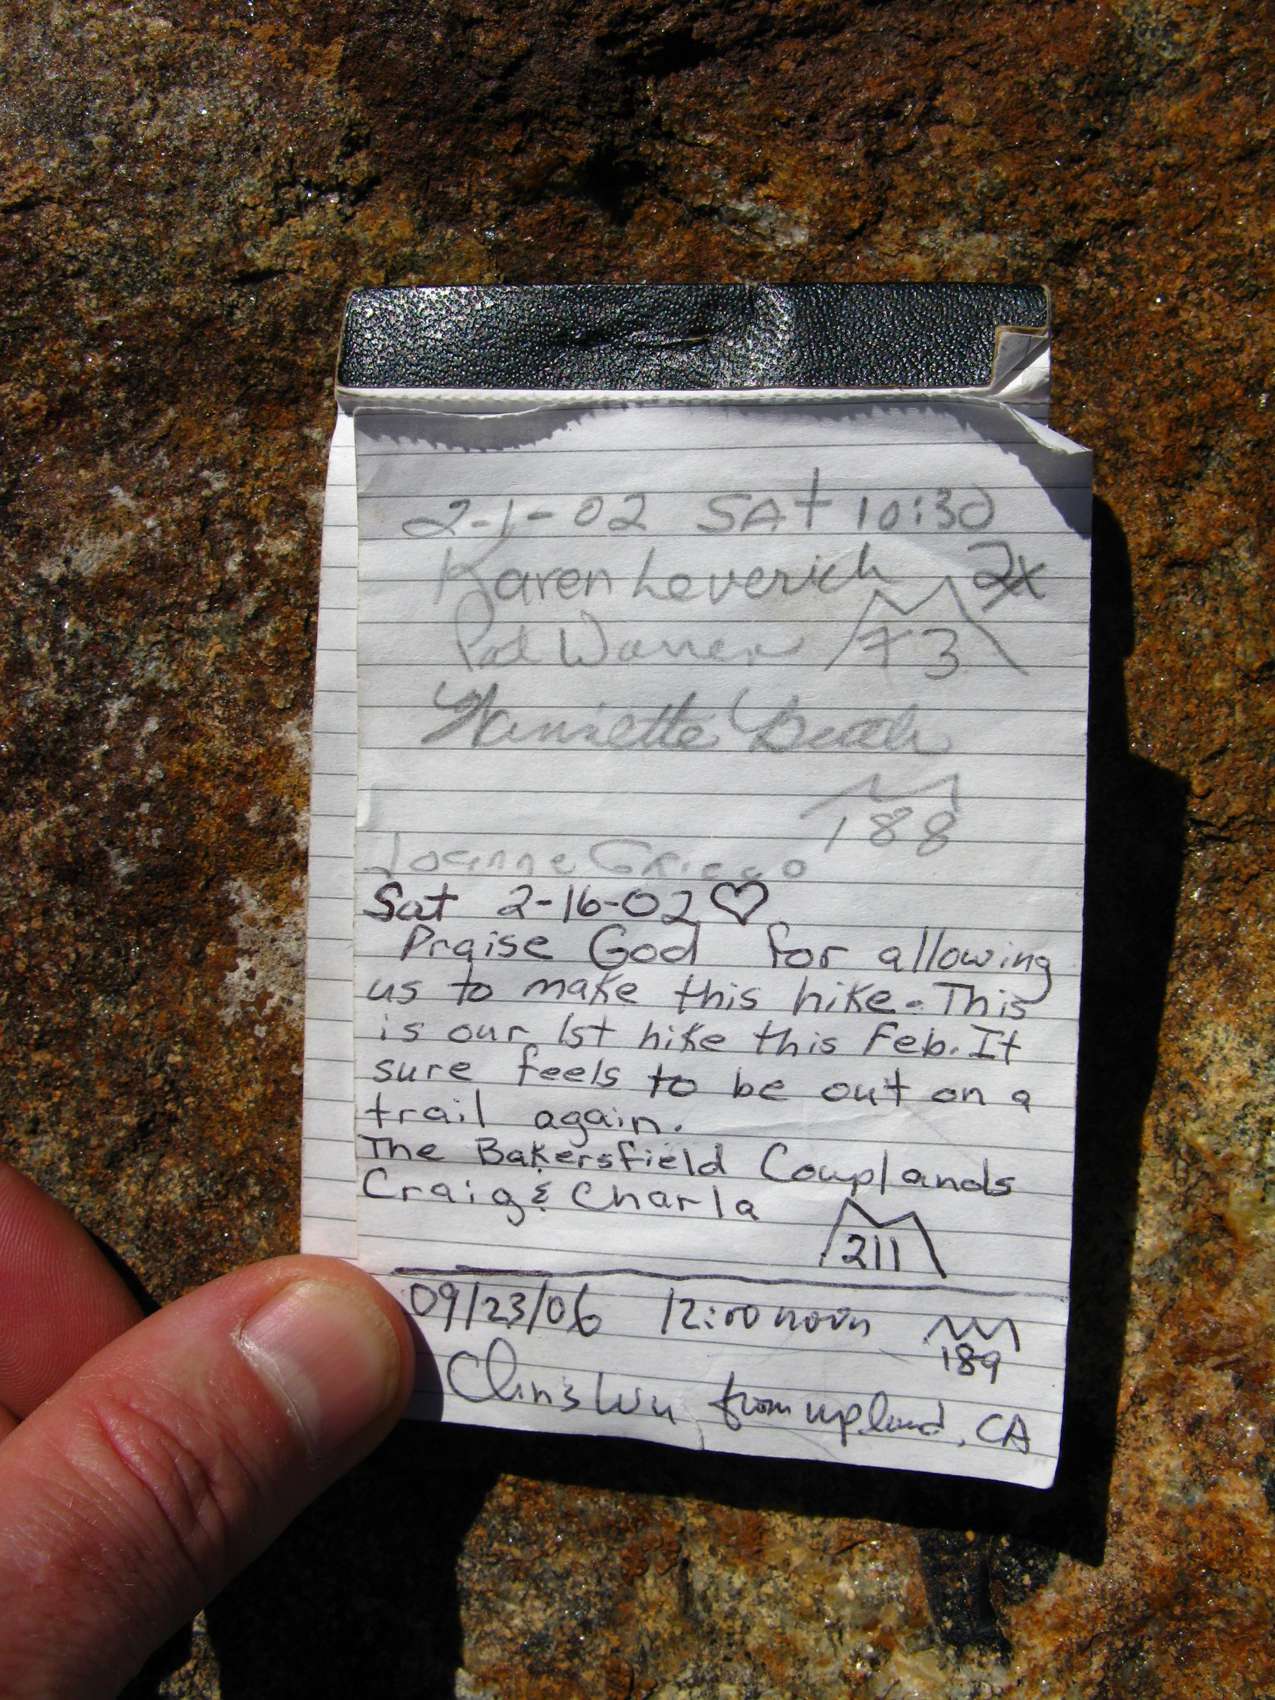 2-1-02 SAT 10:30
Karen Leverich 2x
Pat Warren 73
Henriette
188
Joanne Griego
Sat 2-16-02♡
Praise God for allowing
us to make this hike. This
is our 1st hike this Feb. It
sure feels to be out on a
trail again.
The Bakersfield Couplands
Craig & Charla
211
09/23/06 12:00 noon
189
Wu from upland, CA